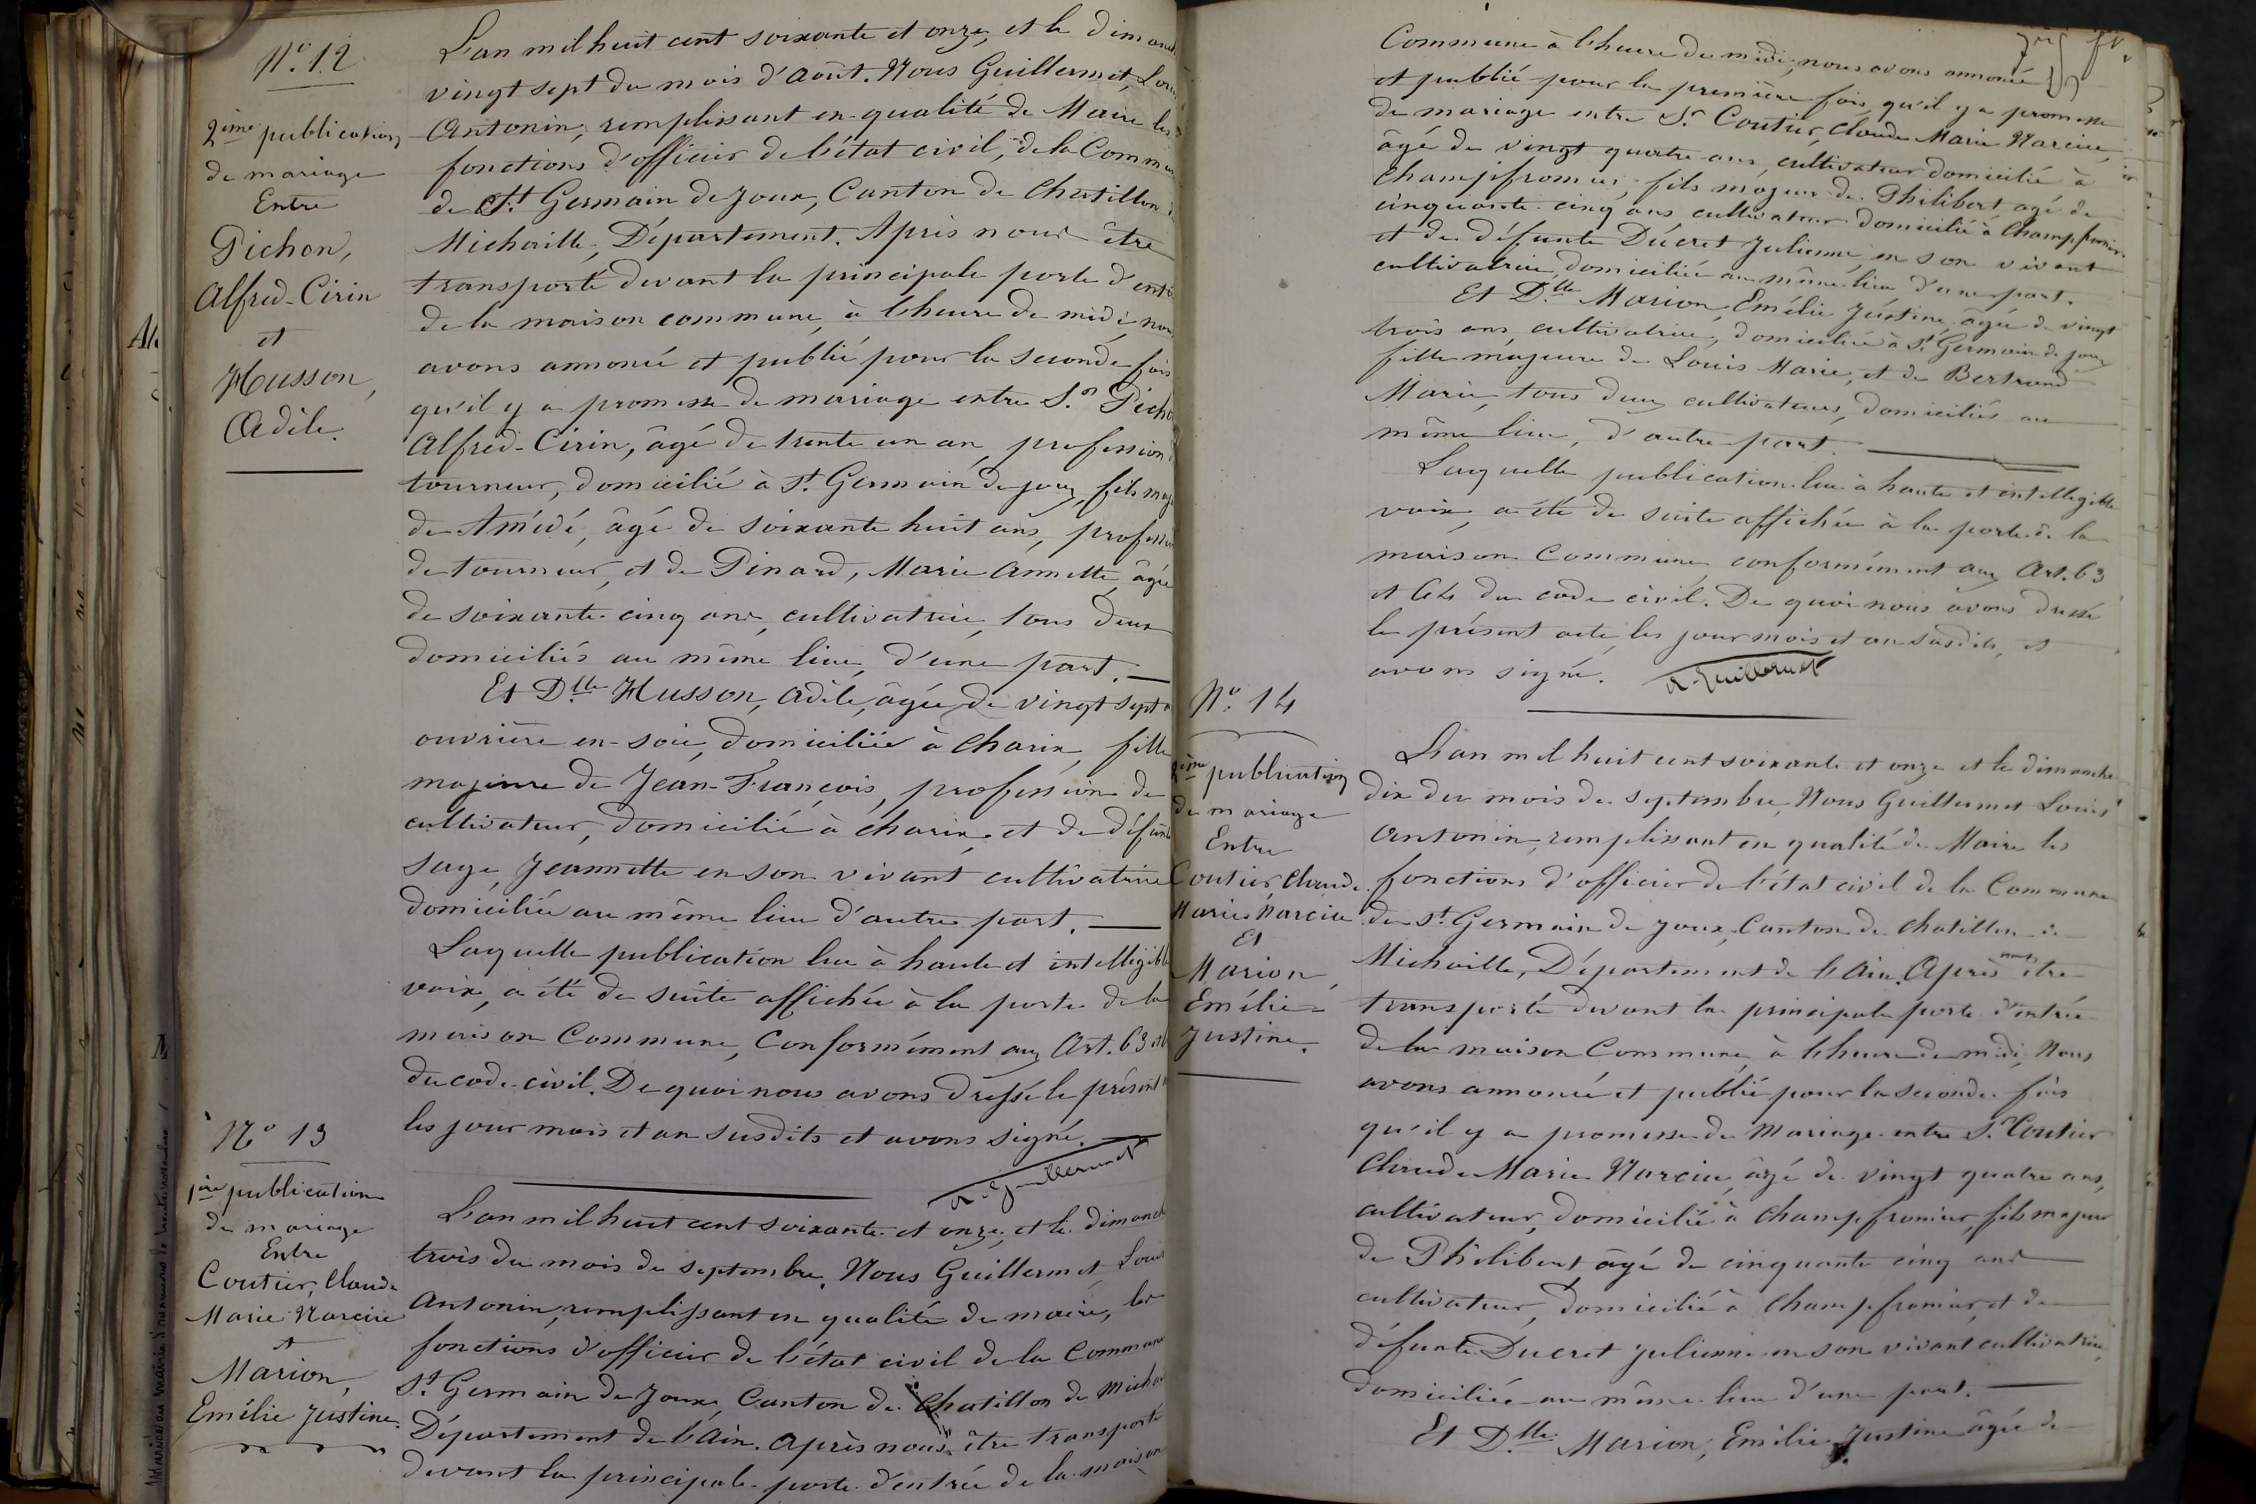 N° 12
2ème publication
de mariage
Entre
Pichon,
Alfred-Cirin
et
Husson,
Adile.
L'an mil huit cent soixante et onze, et le dimanc
vingt sept du mois d'Août. Nous Guillermet, Loui
Antonin, remplissant en qualité de Maire les
fonctions d'officier de l'état civil, de la Commun
de St Germain de Joux, Canton de Chatillon
Michaille, Département. Après nous être
transporté devant la principale porte d'entr
de la maison commune, à l'heure de midi, nou
avons annoncé et publié pour la seconde fois
qu'il y a promesse de mariage entre Sr Picho
Alfred-Cirin, âgé de trente un an, profession
tourneur, domicilié à St Germain de joux, fils maj
de Amédé, âgé de soixante huit ans, profess
de tourneur, et de Pinard, Marie Annette, âgée
de soixante-cinq ans, cultivatrice, tous deux
domiciliés au même lieu, d'une part.
Et Dlle Husson, Adile, âgée de vingt sept a
ouvrière en-soie, domiciliée à Charix, fille
majeure de Jean-François, profession de
cultivateur, domicilié à charix, et de défun
Sage, Jeannette en son vivant cultivatrice
domiciliée au même lieu d'autre part.
Laquelle publication lue à haute et intelligible
voix, a été de suite affichée à la porte de la
maison Commune, Conformément aux Art. 63 et 6
du code civil. De quoi nous avons dressé le présent
les jour mois et an susdits et avons signé.
A. Guillermet
N° 13
1ère publication
de mariage
Entre
Coutier, Claude
Marie Narcise
et
Marion,
Emélie Justine.
L'an mil huit cent soixante et onze, et le dimanch
trois du mois de septembre, Nous Guillermet Loui
Antonin, remplissant en qualité de maire, les
fonctions d'officier de l'état civil de la Commune
St Germain de Joux, Canton de Chatillon de Micha
Département de l'Ain. Après nous être transporté
devant la principale porte d'entrée de la maison
Commune à l'heure de midi, nous avons annoncé
et publié pour la première fois, qu'il y a promesse
de mariage entre Sr Coutier, Claude Marie Narcise,
âgé de vingt quatre ans, cultivateur domicilié à
Champfromier, fils majeur de Philibert agé de
cinquante-cinq ans cultivateur domicilié à Champfromier
et de défunte Ducret Julienne, en son vivant
cultivatrice, domiciliée au même lieu d'une part.
Et Dlle Marion, Emélie Justine, âgée de vingt
trois ans, cultivatrice, domiciliée à St Germain de joux
fille majeure de Louis Marie, et de Bertrand
Marie, tous deux cultivateurs, domiciliés au
même lieu, d'autre part.
Laquelle publication lue à haute et intelligible
voix, a été de suite affichée à la porte de la
maison Commune, conformément aux Art. 63
et 64 du code civil. De quoi nous avons dressé
le présent acte, les jour mois et an susdits, et
avons signé.
A. Guillermet
N° 14
2ème publication
de mariage
Entre
Coutier, Claude
Marie Narcise
Et
Marion,
Emélie
Justine.
L'an mil huit cent soixante et onze et le dimanche
dix du mois de septembre, Nous Guillermet Louis
Antonin, remplissant en qualité de Maire les
fonctions d'officier de l'état civil de la Commune
de St Germain de Joux, Canton de Chatillon de
Michaille, Département de l'Ain. Après nous être
transporté devant la principale porte d'entrée
de la maison Commune, à l'heure de midi, Nous
avons annoncé et publié pour la seconde fois
qu'il y a promesse de Mariage entre Sr Coutier
Claude Marie Narcise, âgé de vingt quatre ans,
cultivateur, domicilié à Champfromier, fils majeur
de Philibert, âgé de cinquante cinq ans
cultivateur, domicilié à Champfromier, et de
défunte Ducret Julienne en son vivant cultivatrice,
domiciliée au même lieu d'une part.
Et Dlle Marion, Emélie Justine âgée de